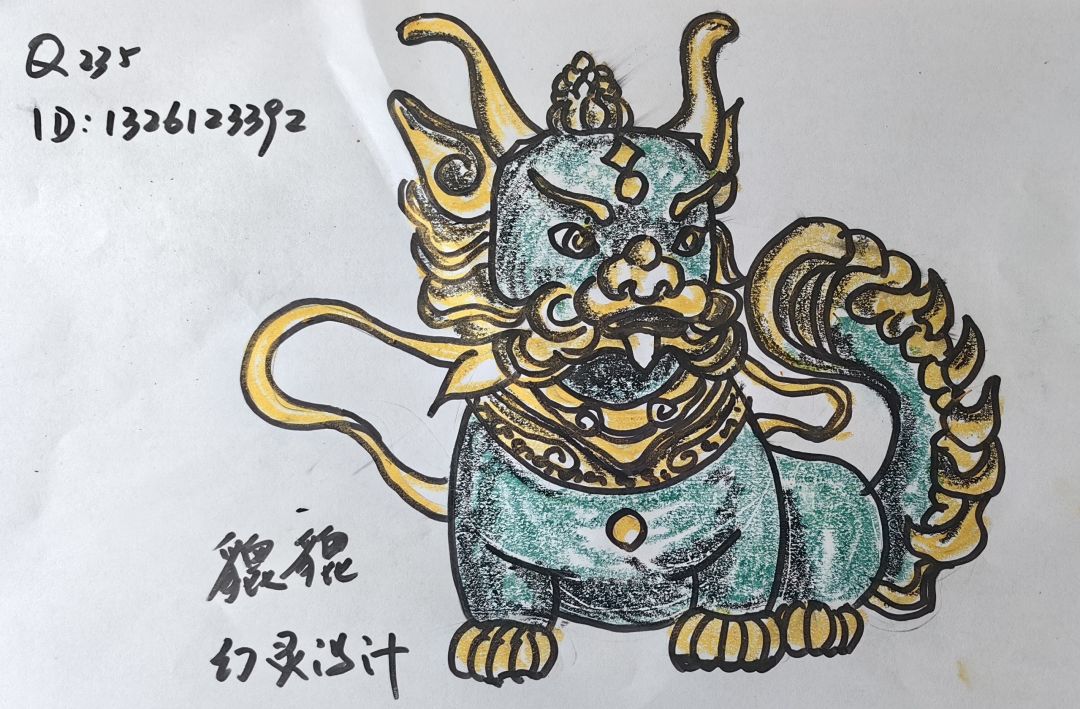 Q 235
ID: 1326123392
貔貔
幻灵设计